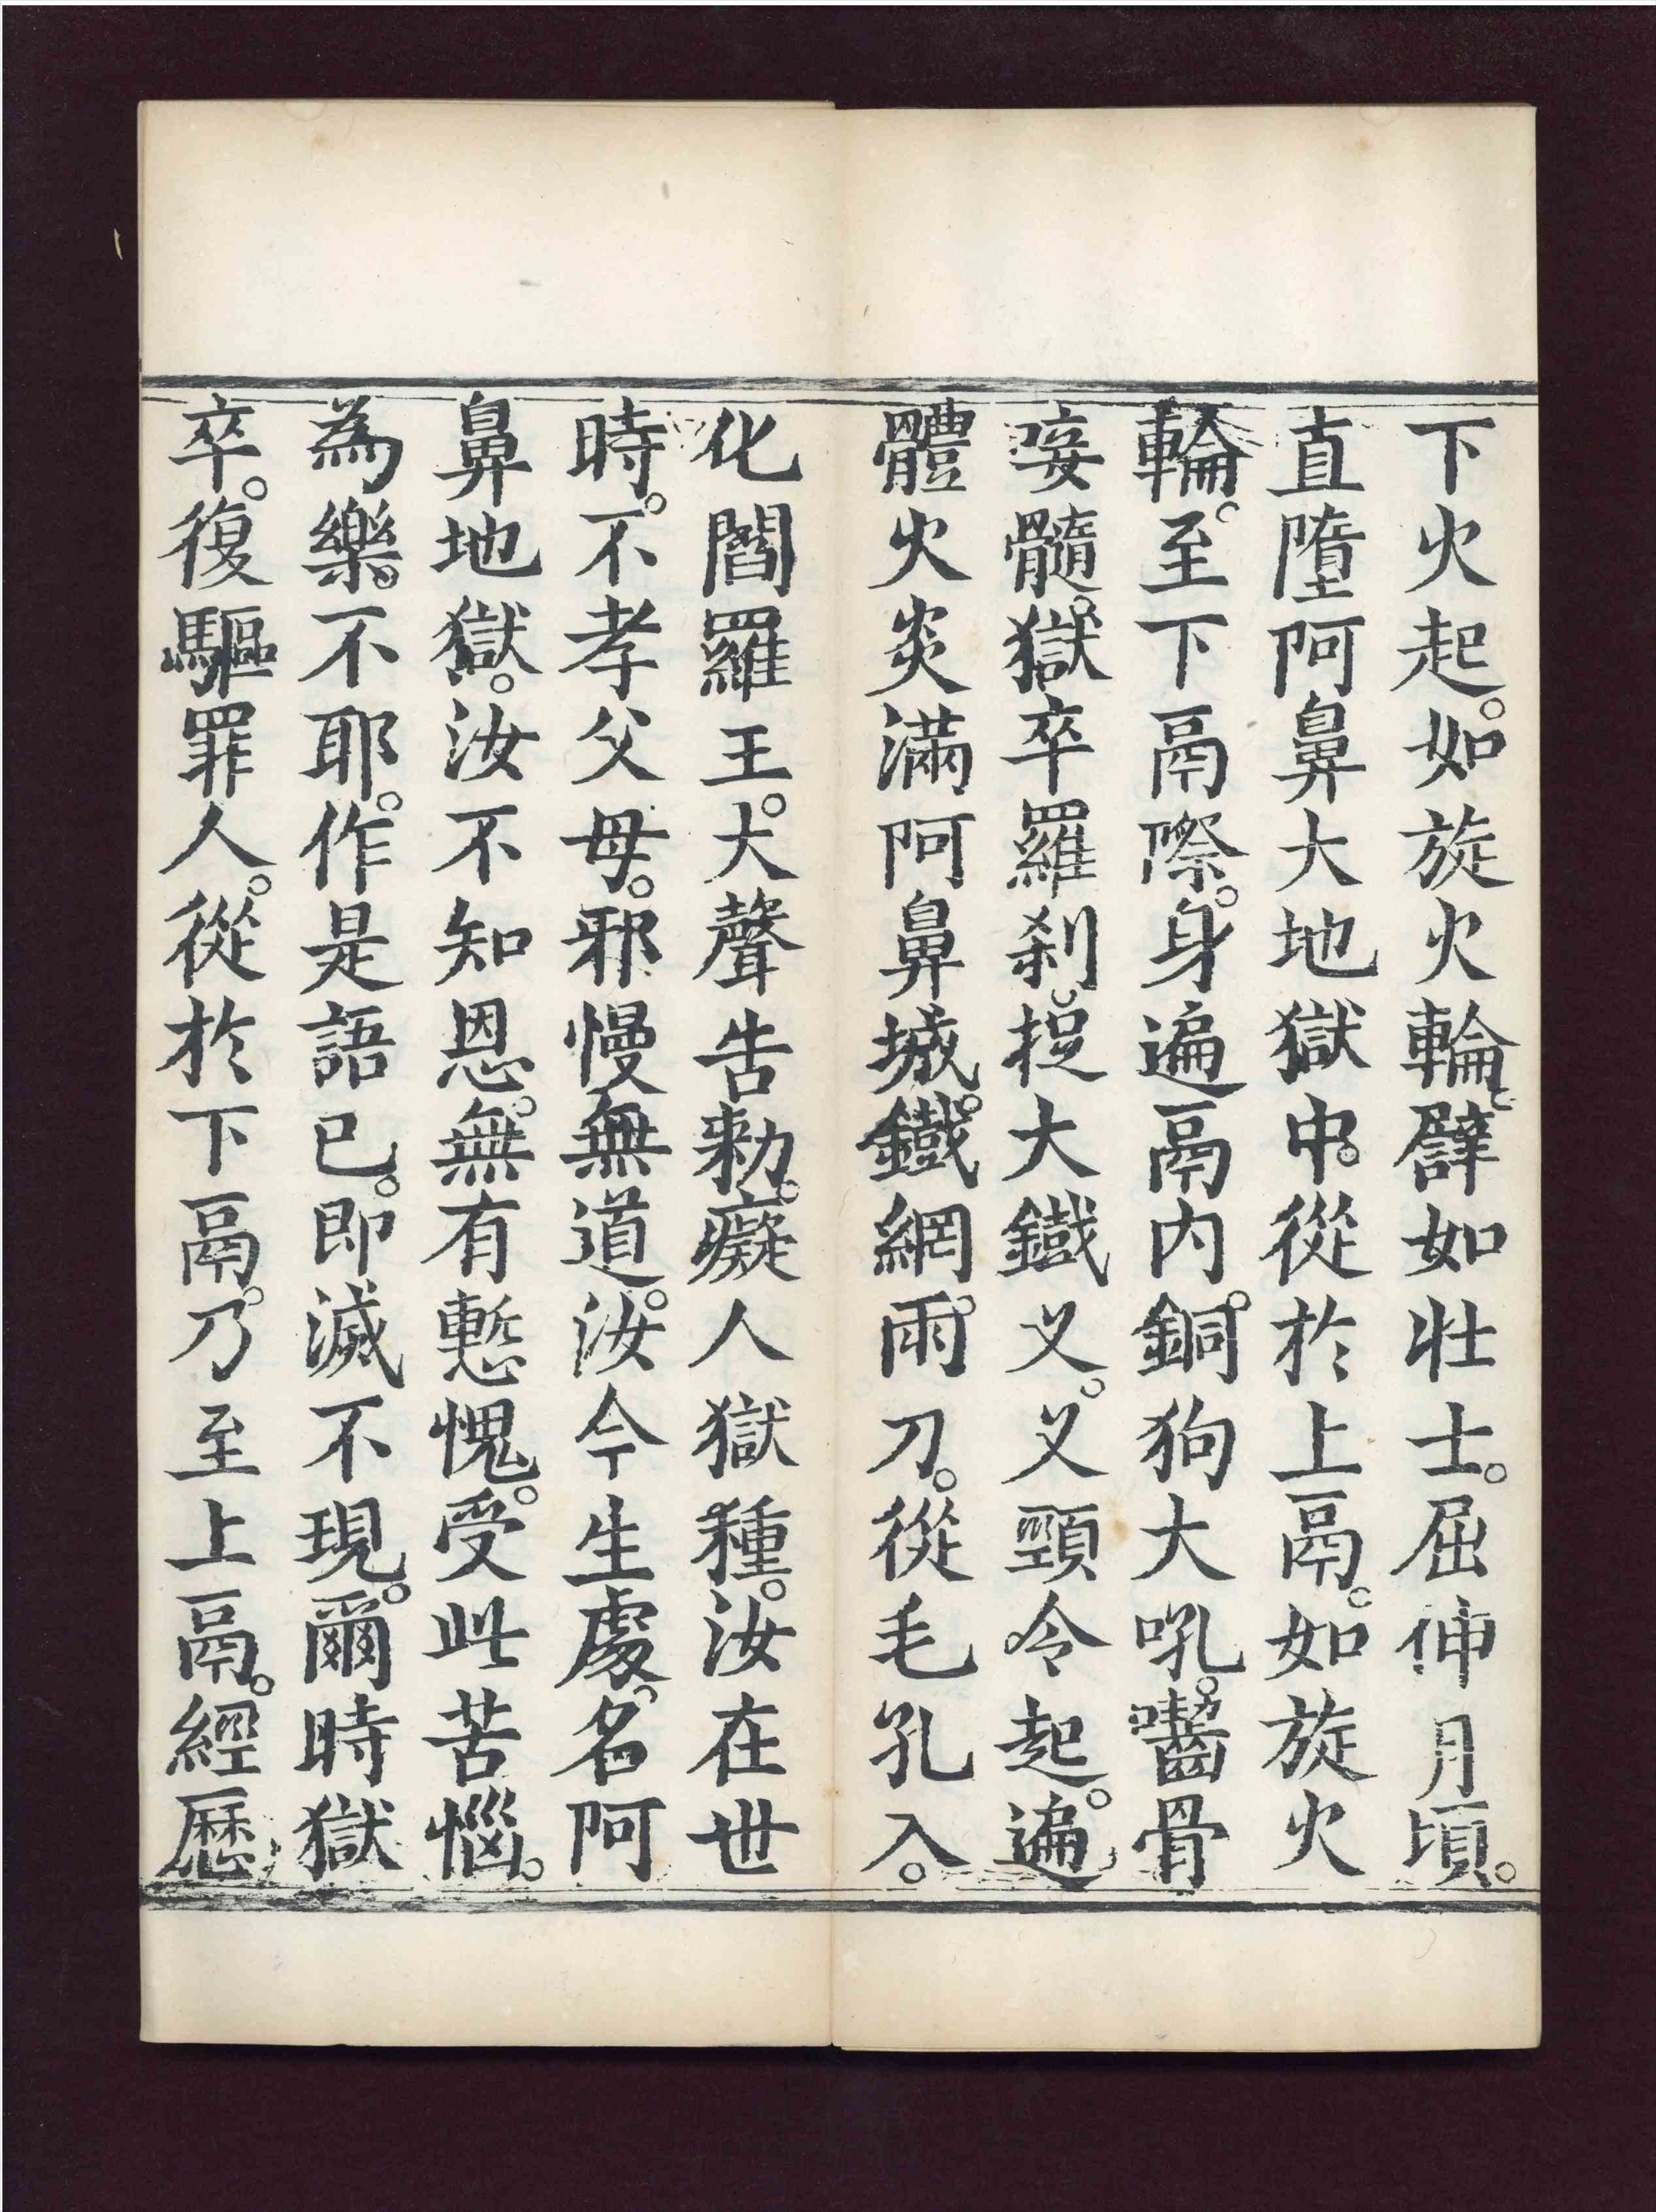 下火起。如旋火輪。譬如壯士。屈伸月頃。
直墮阿鼻大地獄中。從於上鬲。如旋火
輪。至下鬲際。身遍鬲内。銅狗大吼。嚙骨
唼髓。獄卒羅刹。捉大鐵叉。叉頸令起。遍
體火炎滿阿鼻城。鐵網雨刀。從毛孔入。
化閻羅王。大聲告勅。癡人獄種。汝在世
時。不孝父母。邪慢無道。汝今生處。名阿
鼻地獄。汝不知恩。無有慙愧。受此苦惱。
為樂。不耶。作是語已。即滅不現。爾時獄
卒。復驅罪人。從於下鬲。乃至上鬲。經歷